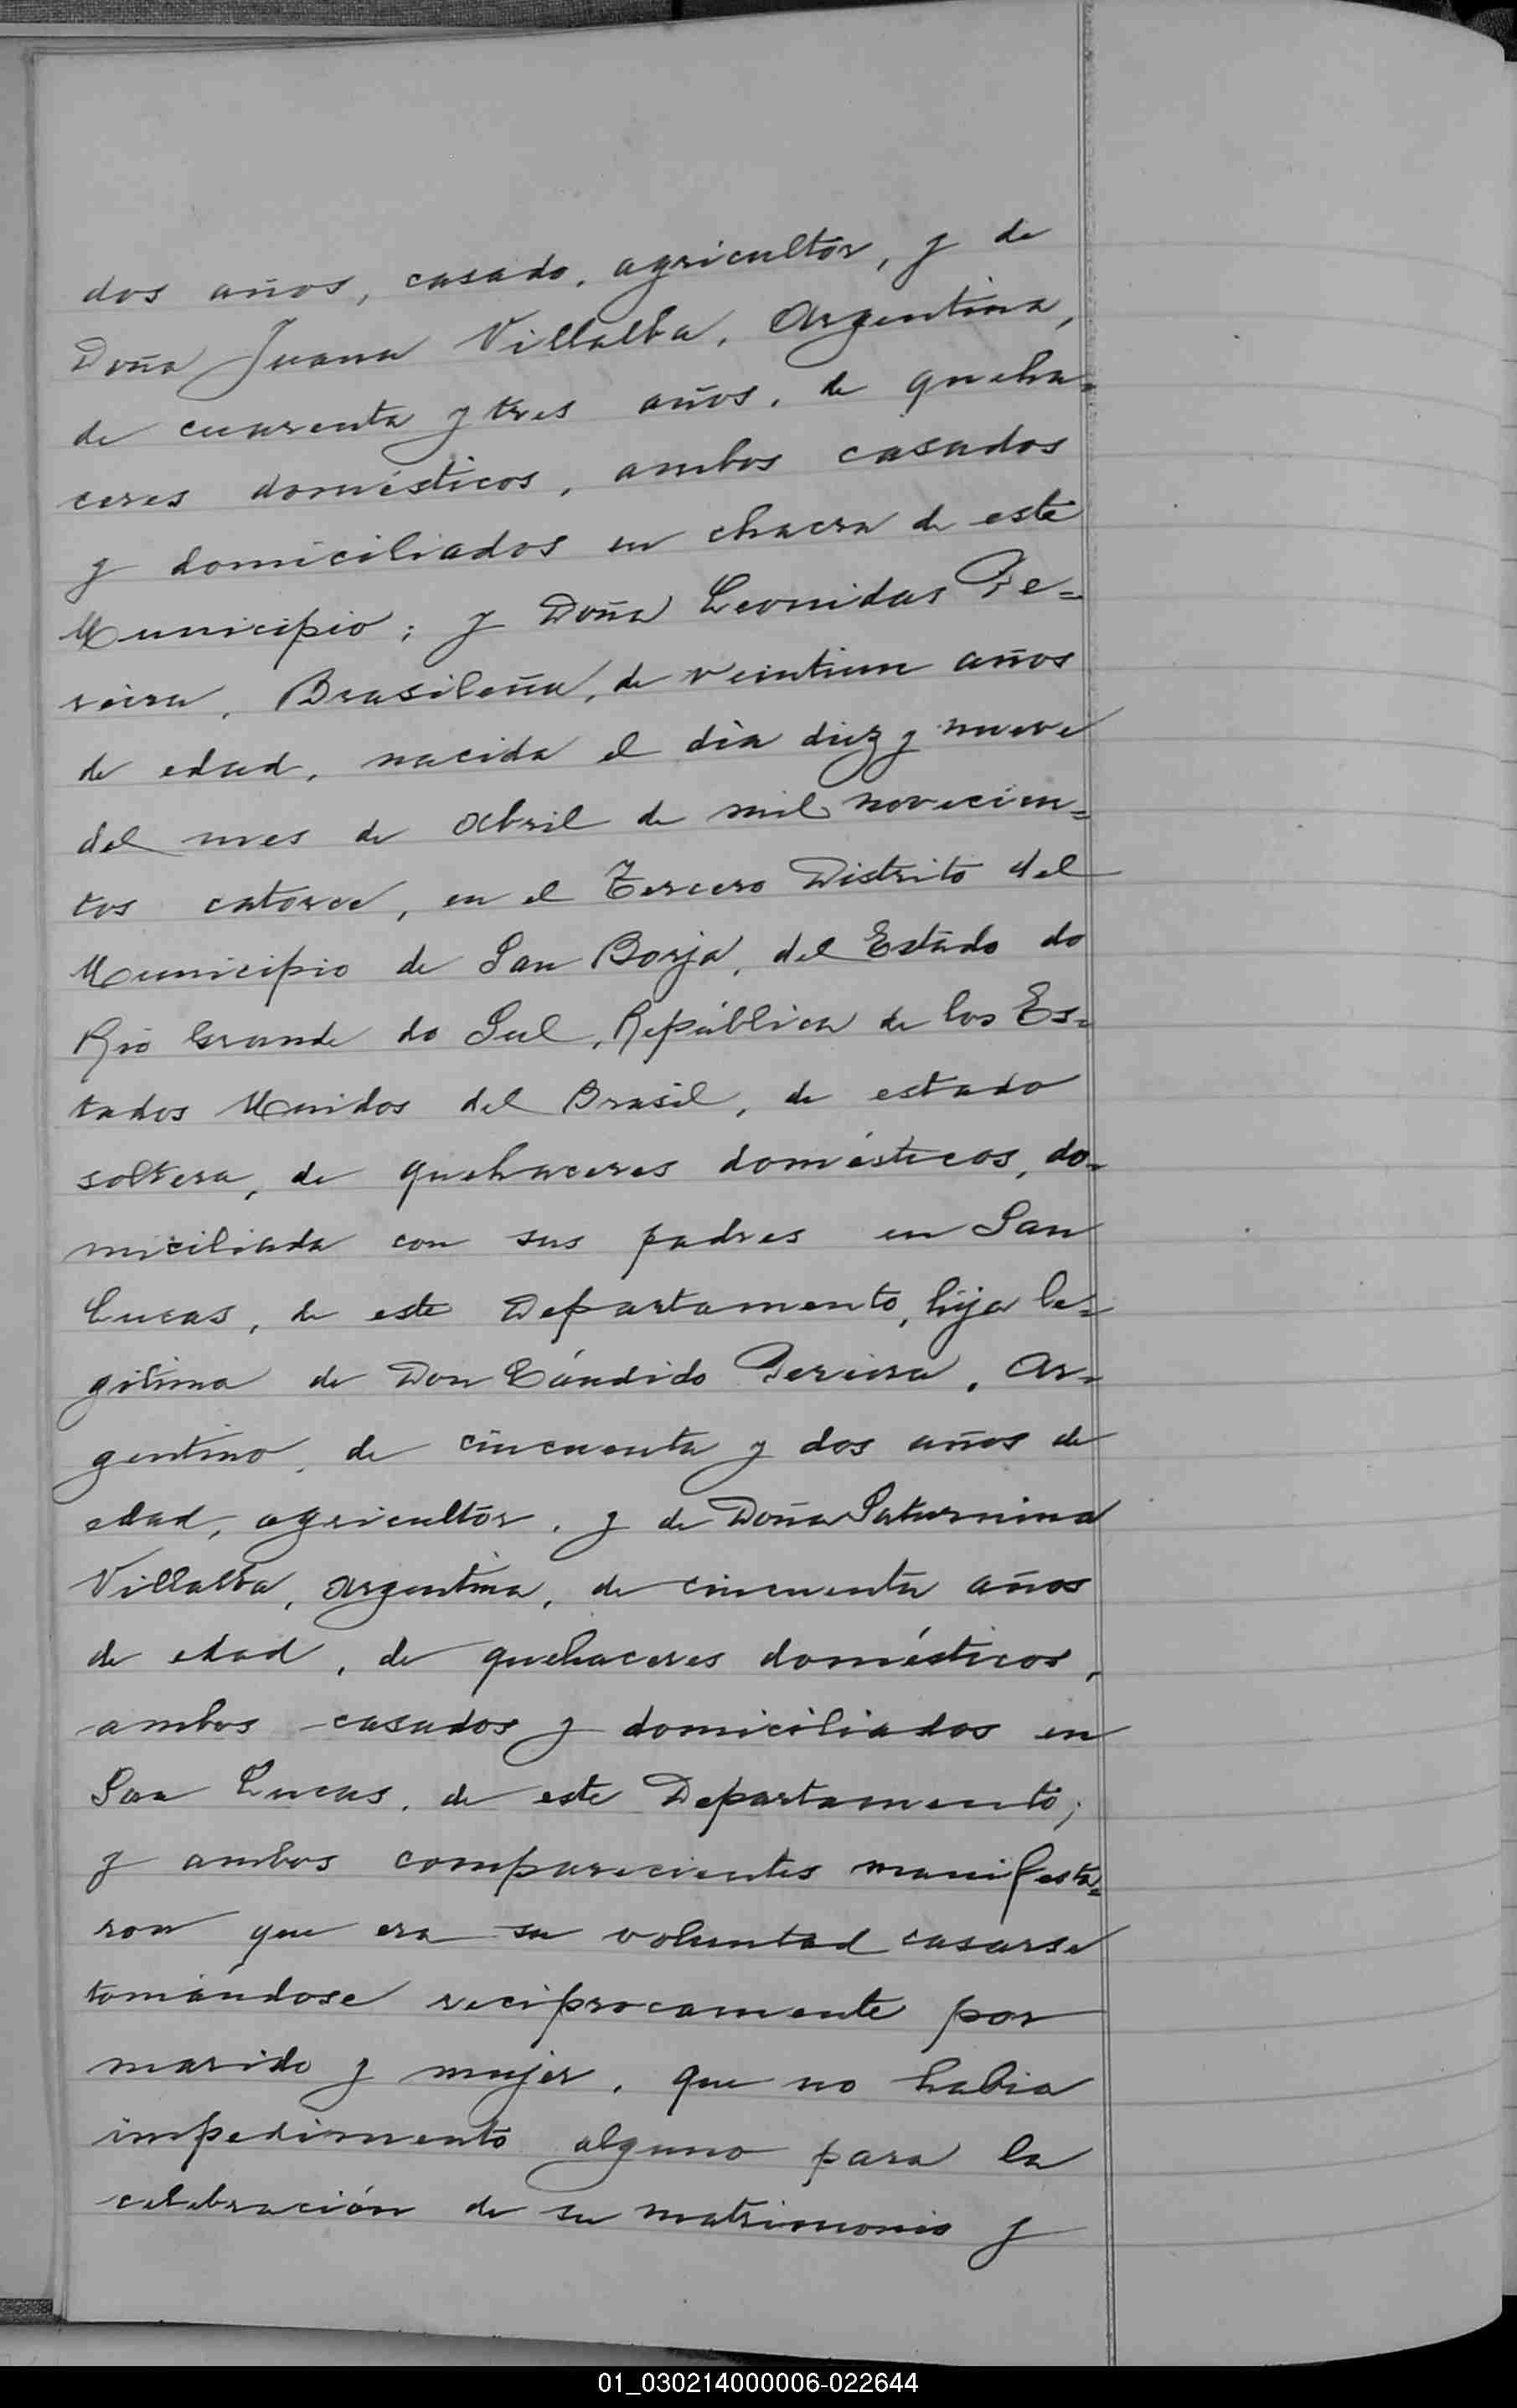 dos años, casado, agricultor, y de
Doña Juana Villalba, Argentina,
de cuarenta y tres años, de queha=
ceres domésticos, ambos casados
y domiciliados en chacra de este
Municipio; y Doña Leonidas Pe=
reira, Brasileña, de veintiun años
de edad, nacida el día diez y nueve
del mes de Abril de mil novecien=
tos catorce, en el Tercero Distrito del
Municipio de San Borja, del Estado do
Rio Grande do Sul, República de los Es=
tados Unidos del Brasil, de estado
soltera, de quehaceres domésticos, do=
miciliada con sus padres en San
Lucas, de este Departamento, hija le=
gitima de Don Cándido Pereira, Ar=
gentino, de cincuenta y dos años de
edad, agricultor, y de Doña Saturnina
Villalba, Argentina, de cincuenta años
de edad, de quehaceres domésticos,
ambos casados y domiciliados en
San Lucas, de este Departamento;
y ambos comparecientes manifesta=
ron que era su voluntad casarse
tomándose reciprocamente por
marido y mujer, que no habia
impedimento alguno para la
celebración de su matrimonio y
01_030214000006-022644